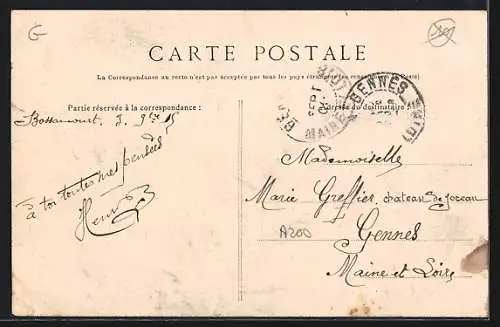 G
CARTE POSTALE
(La Correspondance au recto n'est pas acceptée par tous les pays étrangers
Partie réservée à la correspondance :
Adresse du destinataire
GENNES
MAINE
à toi toutes mes pensées
Henri
Mademoiselle
Marie Greffier, chateau de Jozeau
Gennes
A200
Maine et Loire